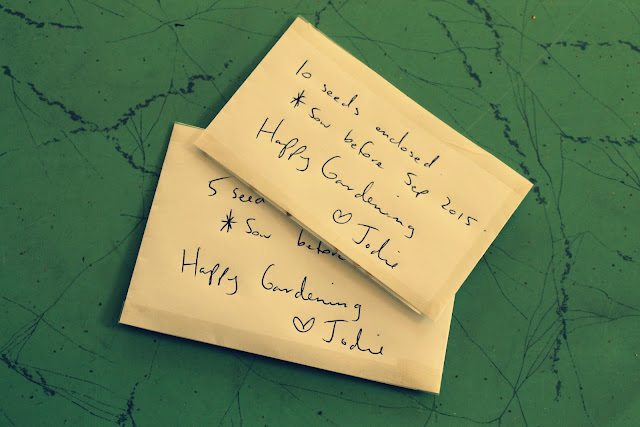 10 seeds enclosed.
* Sow before Sep 2015.
Happy Gardening
♡ Jodie
5 seed
* Sow before
Happy Gardening
♡ Jodie